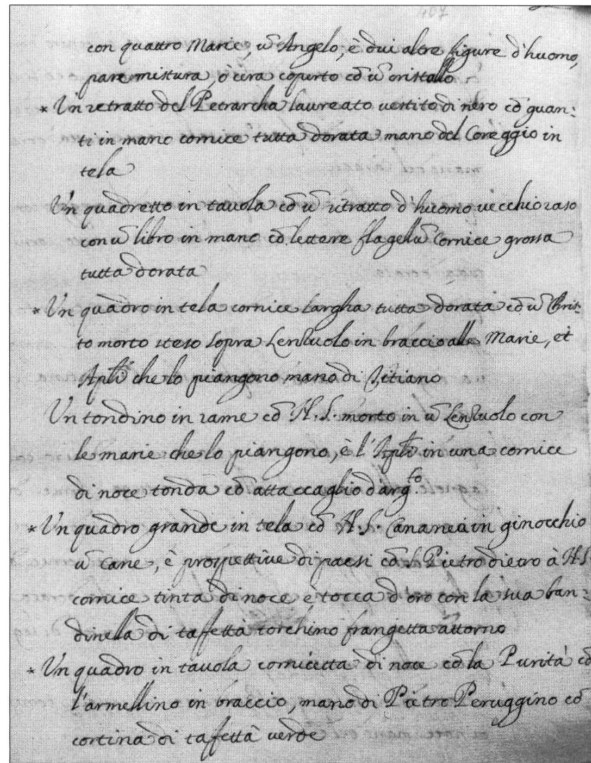 407
con quattro Marie, ũ Angelo, è dui altre figure d'huomo,
pare mistura, ò cira coperto cõ ũ cristallo
* Un retratto del Petrarcha laureato vestito di nero cõ guan:
ti in mano cornice tutta dorata mano del Coreggio in
tela
Un quadretto in tavola cõ ũ ritratto d'huomo vecchio raso
con ũ libro in mano cõ lettere flagelũ cornice grossa
tutta dorata
* Un quadro in tela cornice largha tutta dorata cõ ũ Cris:
to morto steso sopra Lenzuolo in braccio alle Marie, et
Apli che lo piangono mano di Titiano
Un tondino in rame cõ N.S. morto in ũ Lenzuolo con
le marie che lo piangono, è l'Apli in una cornice
di noce tonda cõ attaccaglio d'arg.to
* Un quadro grande in tela cõ N.S. Cananea in ginocchio
ũ cane, è prospettive di paesi cõ S. Pietro dietro à N.S.
cornice tinta di noce e tocca d'oro con la sua ban:
dinella di taffettà torchino frangetta attorno
* Un quadro in tavola cornicetta di noce cõ la Purità cõ
l'armellino in braccio, mano di Pietro Peruggino cõ
cortina di tafettà verde